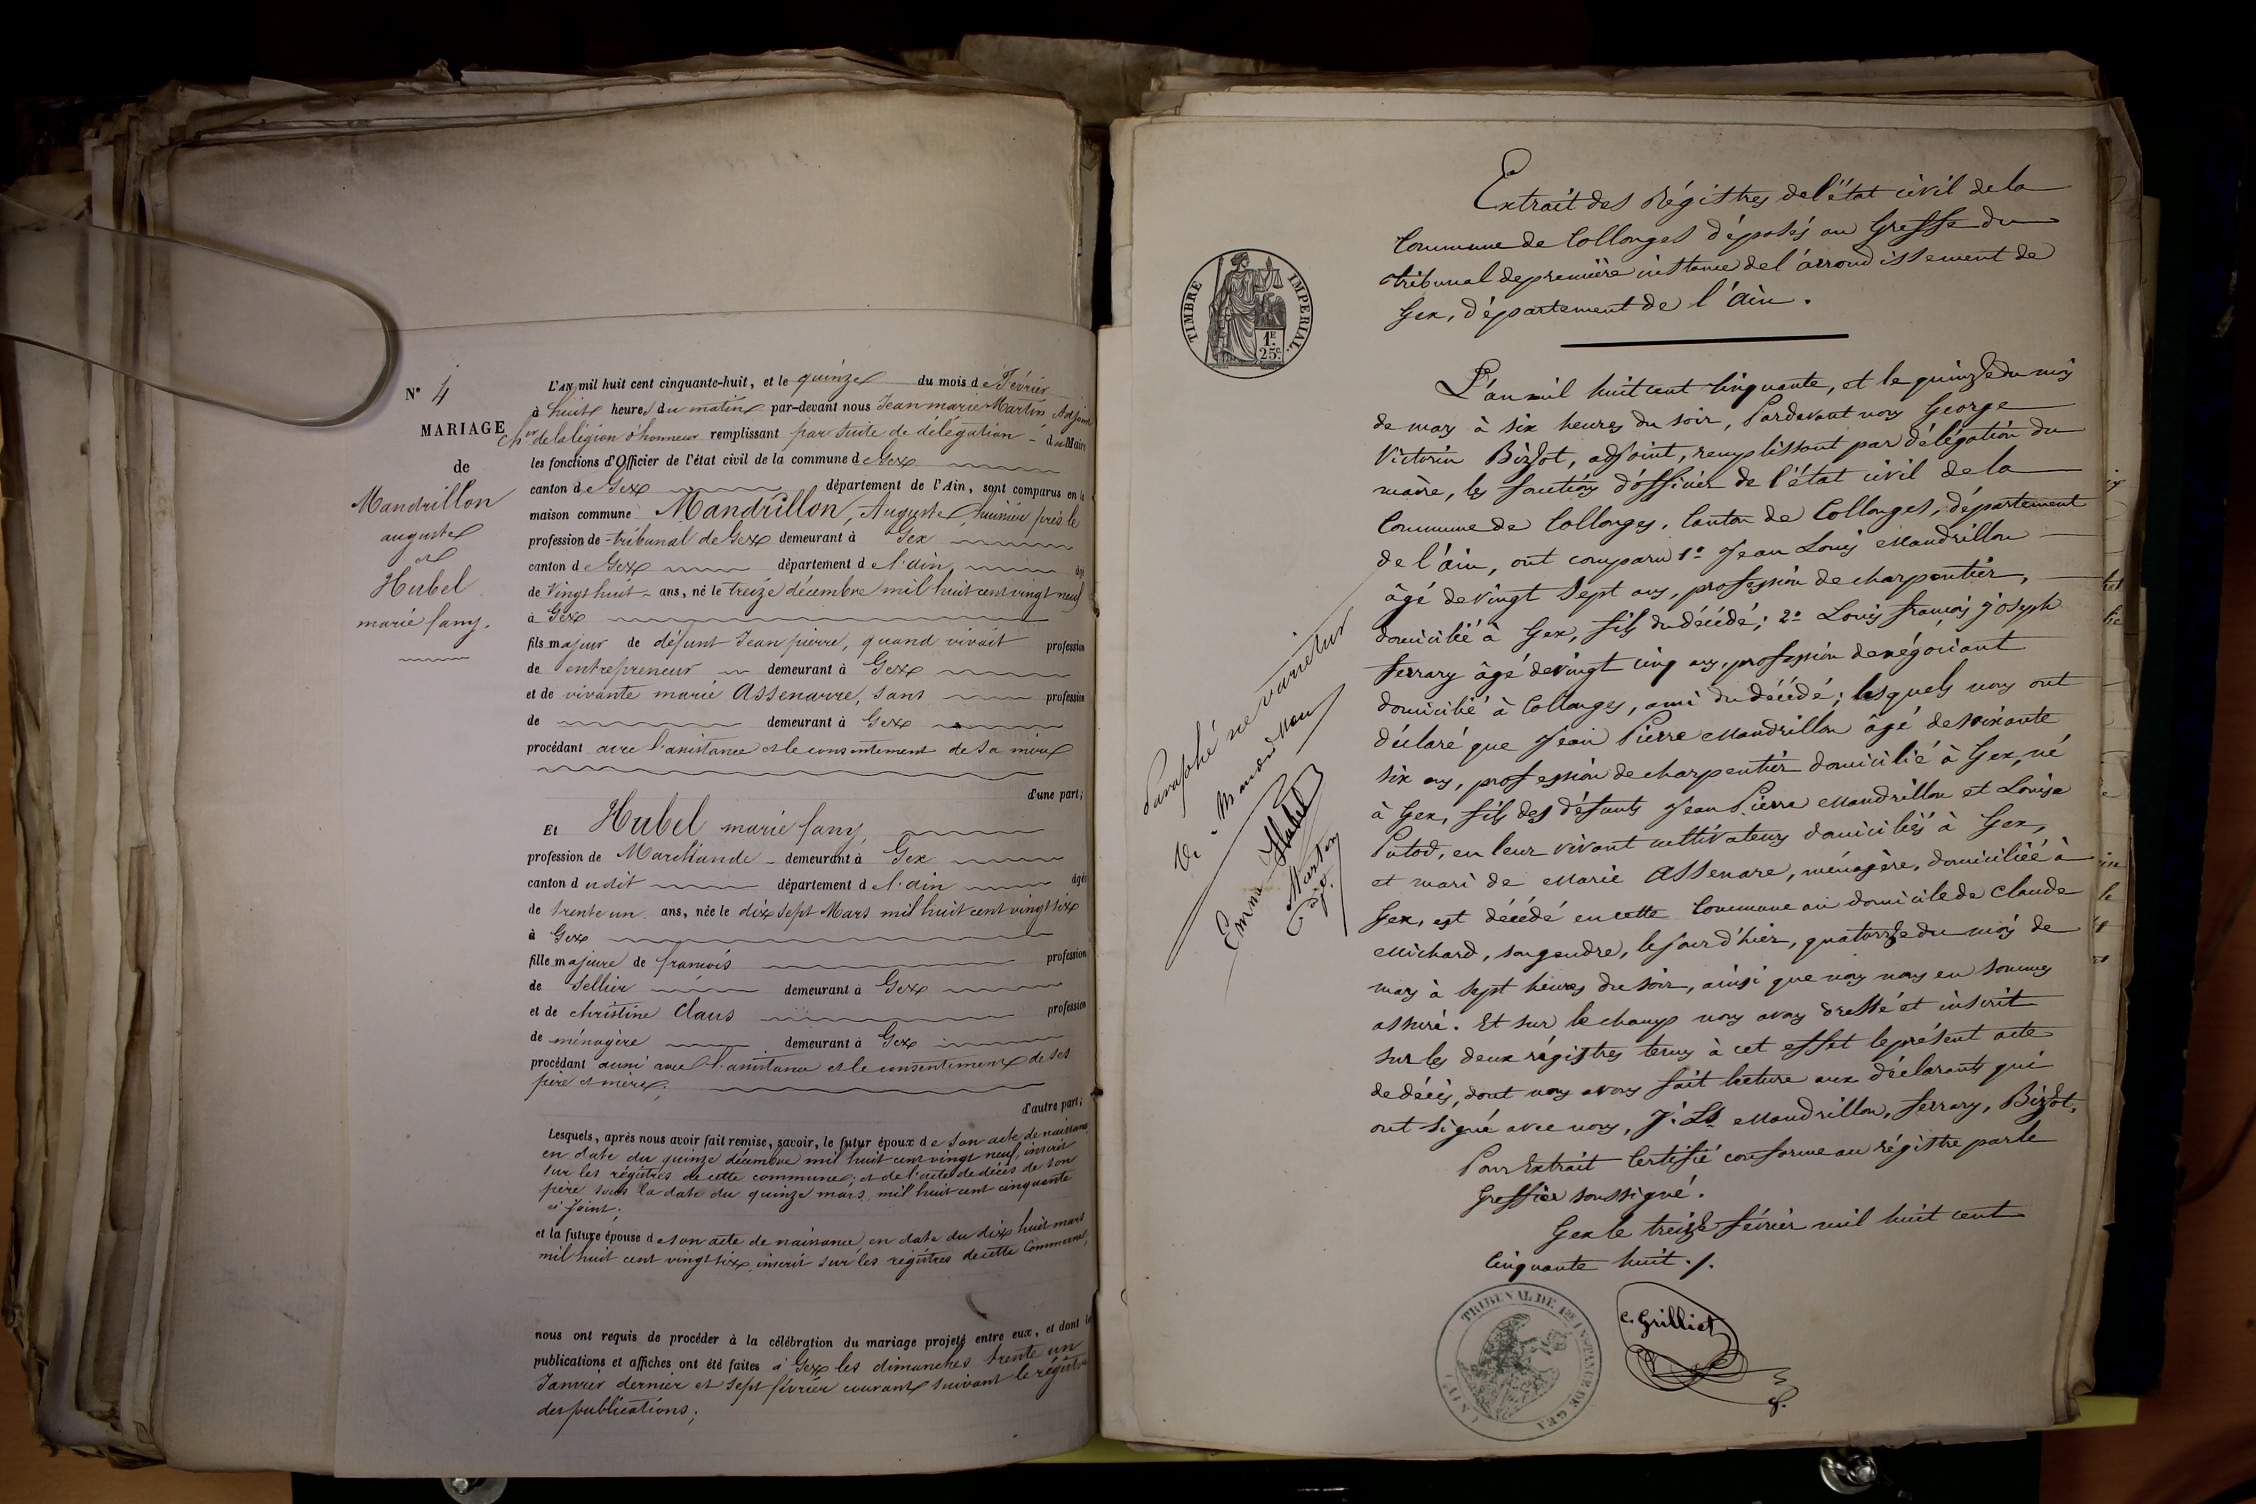 N° 4
MARIAGE
de
Mandrillon
auguste
et
Hubel
marie fany.
L'AN mil huit cent cinquante-huit, et le quinze du mois de Février
à huit heures du matin par-devant nous Jean marie Martin Adjoint
Ch.er de la légion d'honneur remplissant par suite de délégation du Maire
les fonctions d'Officier de l'état civil de la commune de Gex
canton de Gex département de l'Ain, sont comparus en la
maison commune Mandrillon, Auguste, huissier près le
profession de tribunal de Gex demeurant à Gex
canton de Gex département de l'ain âgé
de Vingt huit ans, né le treize décembre mil huit cent vingt neuf
à Gex
fils majeur de défunt Jean pierre, quand vivait profession
de entrepreneur demeurant à Gex
et de vivante marie Assenarre, sans profession
de demeurant à Gex
procédant avec l'assistance et le consentement de sa mère
d'une part;
Et Hubel marie fany
profession de Marchande demeurant à Gex
canton dudit département de l'ain âgée
de trente un ans, née le dix sept Mars mil huit cent vingt six
à Gex
fille majeure de francois profession
de Sellier demeurant à Gex
et de christine Claus profession
de ménagère demeurant à Gex
procédant aussi avec l'assistance et le consentement de ses
père et mère;
d'autre part;
Lesquels, après nous avoir fait remise, savoir, le futur époux de son acte de naissance
en date du quinze décembre mil huit cent vingt neuf, inscrit
sur les régistres de cette commune; et de l'acte de décès de son
père sous la date du quinze mars mil huit cent cinquante
ci joint;
et la future épouse de son acte de naissance en date du dix huit mars
mil huit cent vingt six, inscrit sur les régistres de cette Commune,
nous ont requis de procéder à la célébration du mariage projeté entre eux, et dont les
publications et affiches ont été faites à Gex les dimanches trente un
Janvier dernier et sept février courant suivant le régistre
des publications;
TIMBRE IMPERIAL.
1F.
25c.
Extrait des régistres de l'état civil de la
Commune de Collonges déposés au Greffe du
tribunal de première instance de l'arrondissement de
Gex, département de l'Ain.
L'an mil huit cent cinquante, et le quinze du mois
de mars à six heures du soir, Pardevant nous George
Victorin Bizot, adjoint, remplissant par délégation du
maire, les fonctions d'officier de l'état civil de la
Commune de Collonges, Canton de Collonges, département
de l'ain, ont comparu 1° Jean Louis Mandrillon
âgé de vingt sept ans, profession de charpentier,
domicilié à Gex, fils du décédé; 2° Louis françois joseph
ferrary âgé de vingt cinq ans, profession de négociant
domicilié à Collonges, ami du décédé; lesquels nous ont
déclaré que Jean Pierre Mandrillon âgé de soixante
six ans, profession de charpentier domicilié à Gex, né
à Gex, fils des défunts Jean Pierre Mandrillon et Louise
Putod, en leur vivant cultivateurs domiciliés à Gex,
et mari de Marie Assenare, ménagère, domiciliée à
Gex, est décédé en cette Commune au domicile de Claude
Michard, son gendre, le jour d'hier, quatorze du mois de
mars à sept heures du soir, ainsi que nous nous en sommes
assuré. Et sur le champ nous avons dressé et inscrit
sur les deux régistres tenus à cet effet le présent acte
de décès, dont nous avons fait lecture aux déclarants qui
ont signé avec nous, J. Ls Mandrillon, ferrary, Bizot.
Pour Extrait Certifié conforme au régistre par le
Greffier soussigné.
Gex le treize février mil huit cent
Cinquante huit./.
Paraphé ne varietur
Mandrillon
Emma Hubel
Martin
adjt
TRIBUNAL DE 1RE INSTANCE DE GEX
(AIN)
C. Grilliet